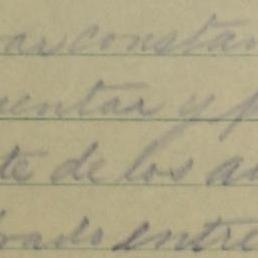 constan
entar y p
te de los a
entre